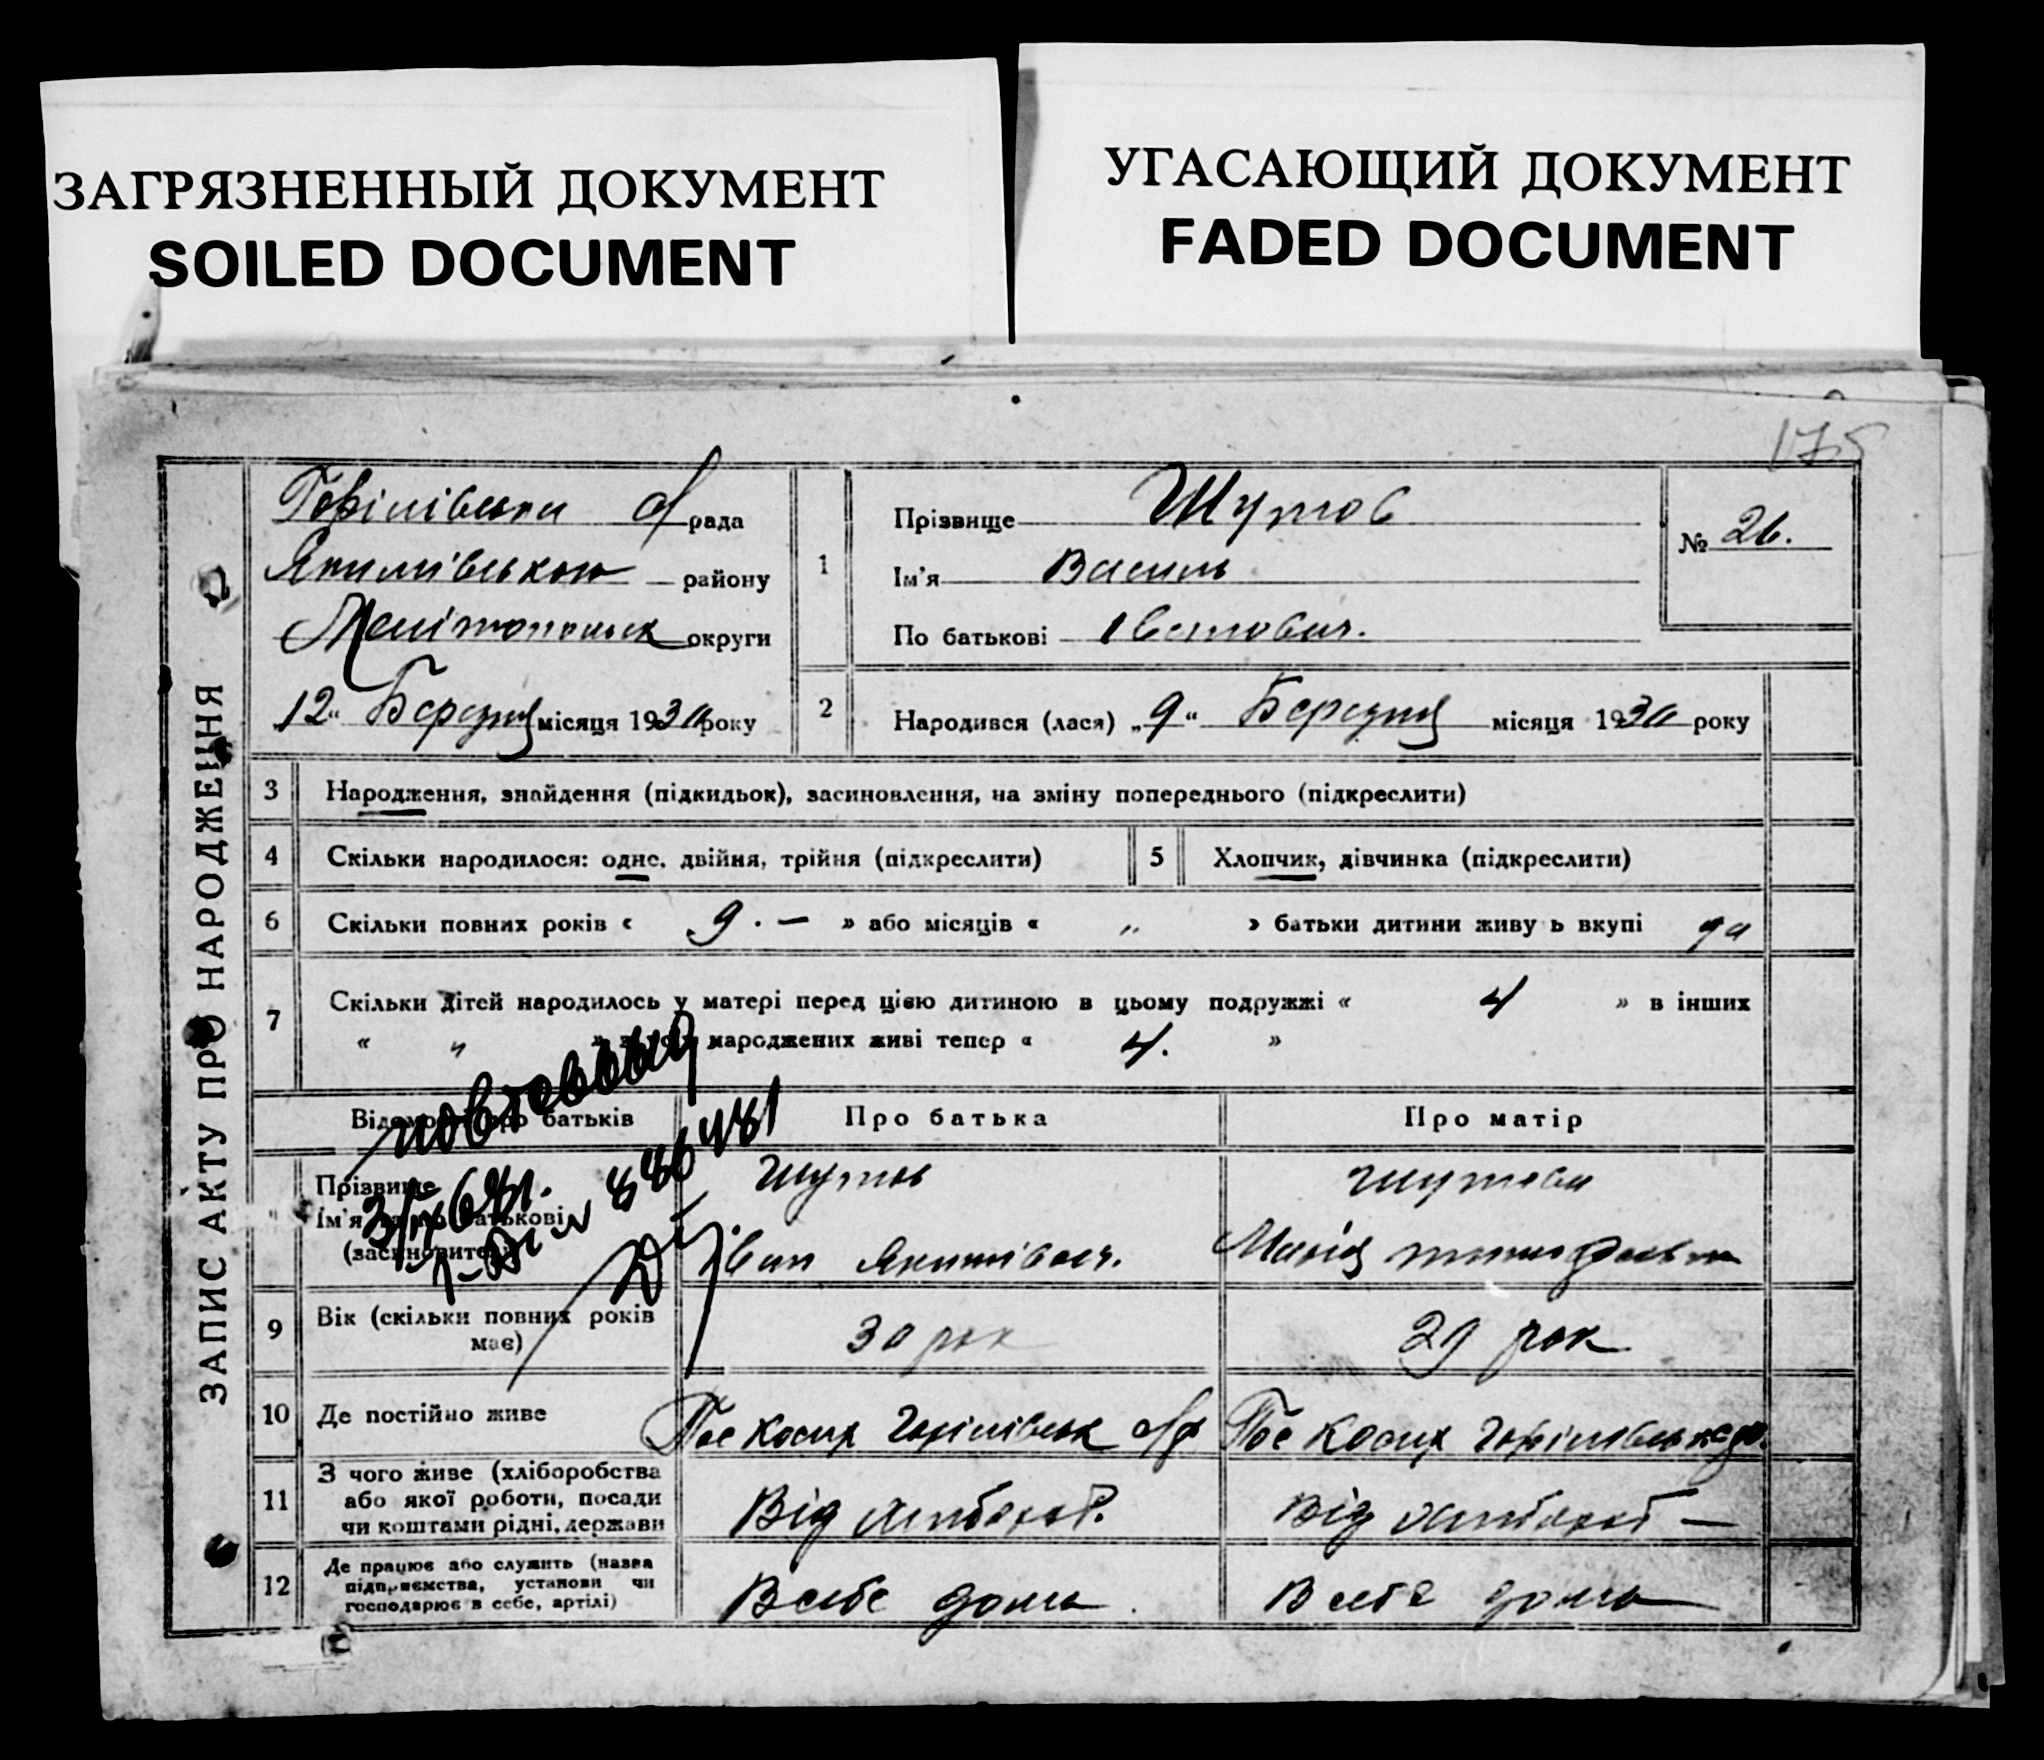 ЗАГРЯЗНЕННЫЙ ДОКУМЕНТ
SOILED DOCUMENT
УГАСАЮЩИЙ ДОКУМЕНТ
FADED DOCUMENT
175
ЗАПИС АКТУ ПРО НАРОДЖЕННЯ
рада
Якимівського району
Мелітопольск округи
12 " Березня місяця 1930 року
1
Прізвище Шутов
Ім'я Василь
По батькові Іванович.
№ 26.
2
Народився (лася) „ 9 " Березня місяця 1930 року
3 Народження, знайдення (підкидьок), засиновлення, на зміну попереднього (підкреслити)
4 Скільки народилося: одне, двійня, трійня (підкреслити)
5 Хлопчик, дівчинка (підкреслити)
6 Скільки повних років « 9. — » або місяців « „ » батьки дитини живу ь вкупі да
7 Скільки дітей народилось у матері перед цією дитиною в цьому подружжі « 4 » в інших
« „ » народжених живі тепер « 4. »
Відомості про батьків
Про батька
Про матір
Прізвище
Ім'я та по батькові
(засиновителів)
Шутов
Іван Якимівич.
Шутова
Марія
886481
9 Вік (скільки повних років
має)
30 рок
29 рок
10 Де постійно живе
Пос
Пос
11 З чого живе (хліборобства
або якої роботи, посади
чи коштами рідні, держави
Від хлібороб.
Від хлібороб —
12 Де працює або служить (назва
підприємства, установи чи
господарює в себе, артілі)
В себе дома.
В себе дома